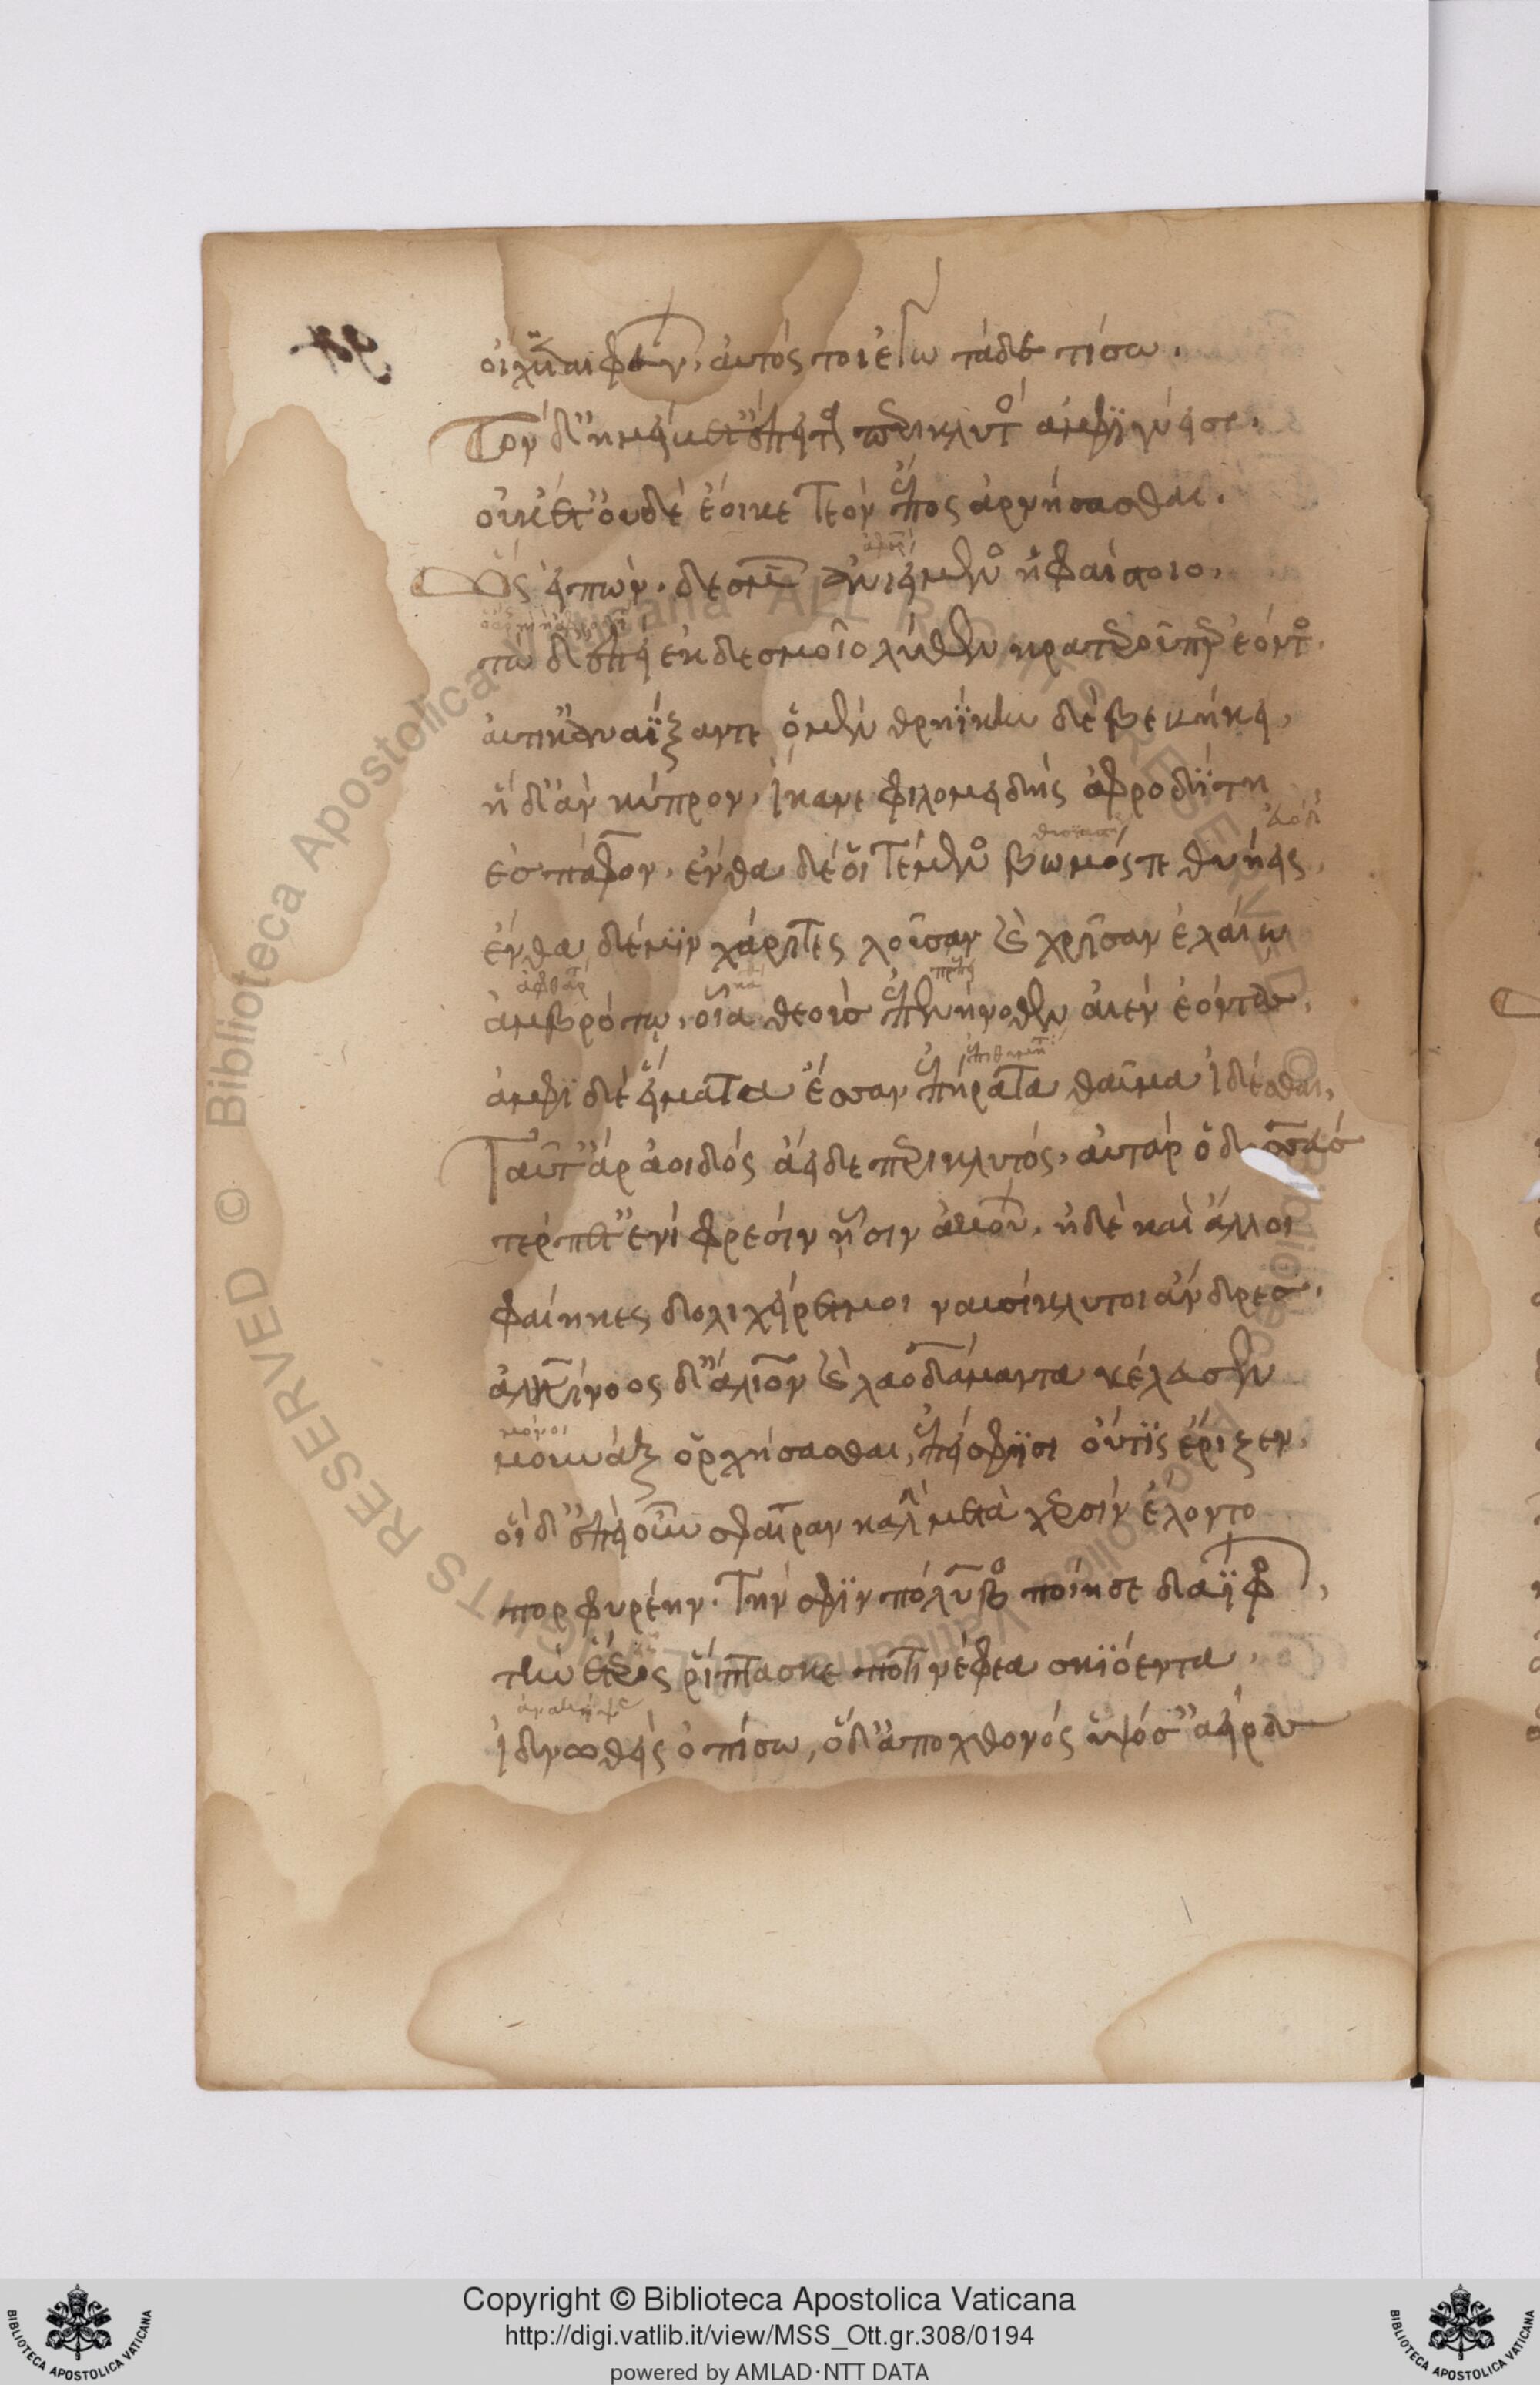 οἴχηται φεύγων, αὐτός τοι ἐγὼ τάδε τίσω.
Τὸν δ' ἠμείβετ' ἔπειτα περικλυτὸς ἀμφιγυήεις.
οὐκ ἔστ' οὐδὲ ἔοικε τεὸν ἔπος ἀρνήσασθαι.
Ὣς εἰπὼν δεσμὸν ἀνίει μένος ἡφαίστοιο.
τὼ δ' ἐπεὶ ἐκ δεσμοῖο λύθεν κρατεροῦ περ ἐόντος.
αὐτίκ' ἀναΐξαντε ὁ μὲν θρήκην δὲ βεβήκει,
ἡ δ' ἄρ κύπρον, ἵκανε φιλομειδὴς ἀφροδίτη
ἐς πάφον. ἔνθα δέ οἱ τέμενος βωμός τε θυήεις
ἔνθα δέ μιν χάριτες λοῦσαν καὶ χρῖσαν ἐλαίῳ
ἀμβρότῳ, οἷα θεοὺς ἐπενήνοθεν αἰὲν ἐόντας.
ἀμφὶ δὲ εἵματα ἕσσαν ἐπήρατα θαῦμα ἰδέσθαι,
Ταῦτ' ἄρ ἀοιδὸς ἄειδε περικλυτός, αὐτὰρ ὀδυσσεὺς
τέρπετ' ἐνὶ φρεσὶν ᾗσιν ἀκούων. ἠδὲ καὶ ἄλλοι
φαίηκες δολιχήρετμοι ναυσίκλυτοι ἄνδρες.
ἀλκίνοος δ' ἅλιον καὶ λαοδάμαντα κέλευσεν
μουνὰξ ὀρχήσασθαι, ἐπεί σφισι οὔτις ἔριζεν.
οἱ δ' ἐπεὶ οὖν σφαῖραν καλὴν μετὰ χερσὶν ἕλοντο
πορφυρέην. τήν σφιν πόλυβος ποίησε δαΐφρων,
τὴν ἕτερος ῥίπτασκε ποτὶ νέφεα σκιόεντα,
ἰδνωθεὶς ὀπίσω, ὁ δ' ἀπὸ χθονὸς ὑψόσ' ἀερθεὶς
Copyright © Biblioteca Apostolica Vaticana
http://digi.vatlib.it/view/MSS_Ott.gr.308/0194
powered by AMLAD·NTT DATA